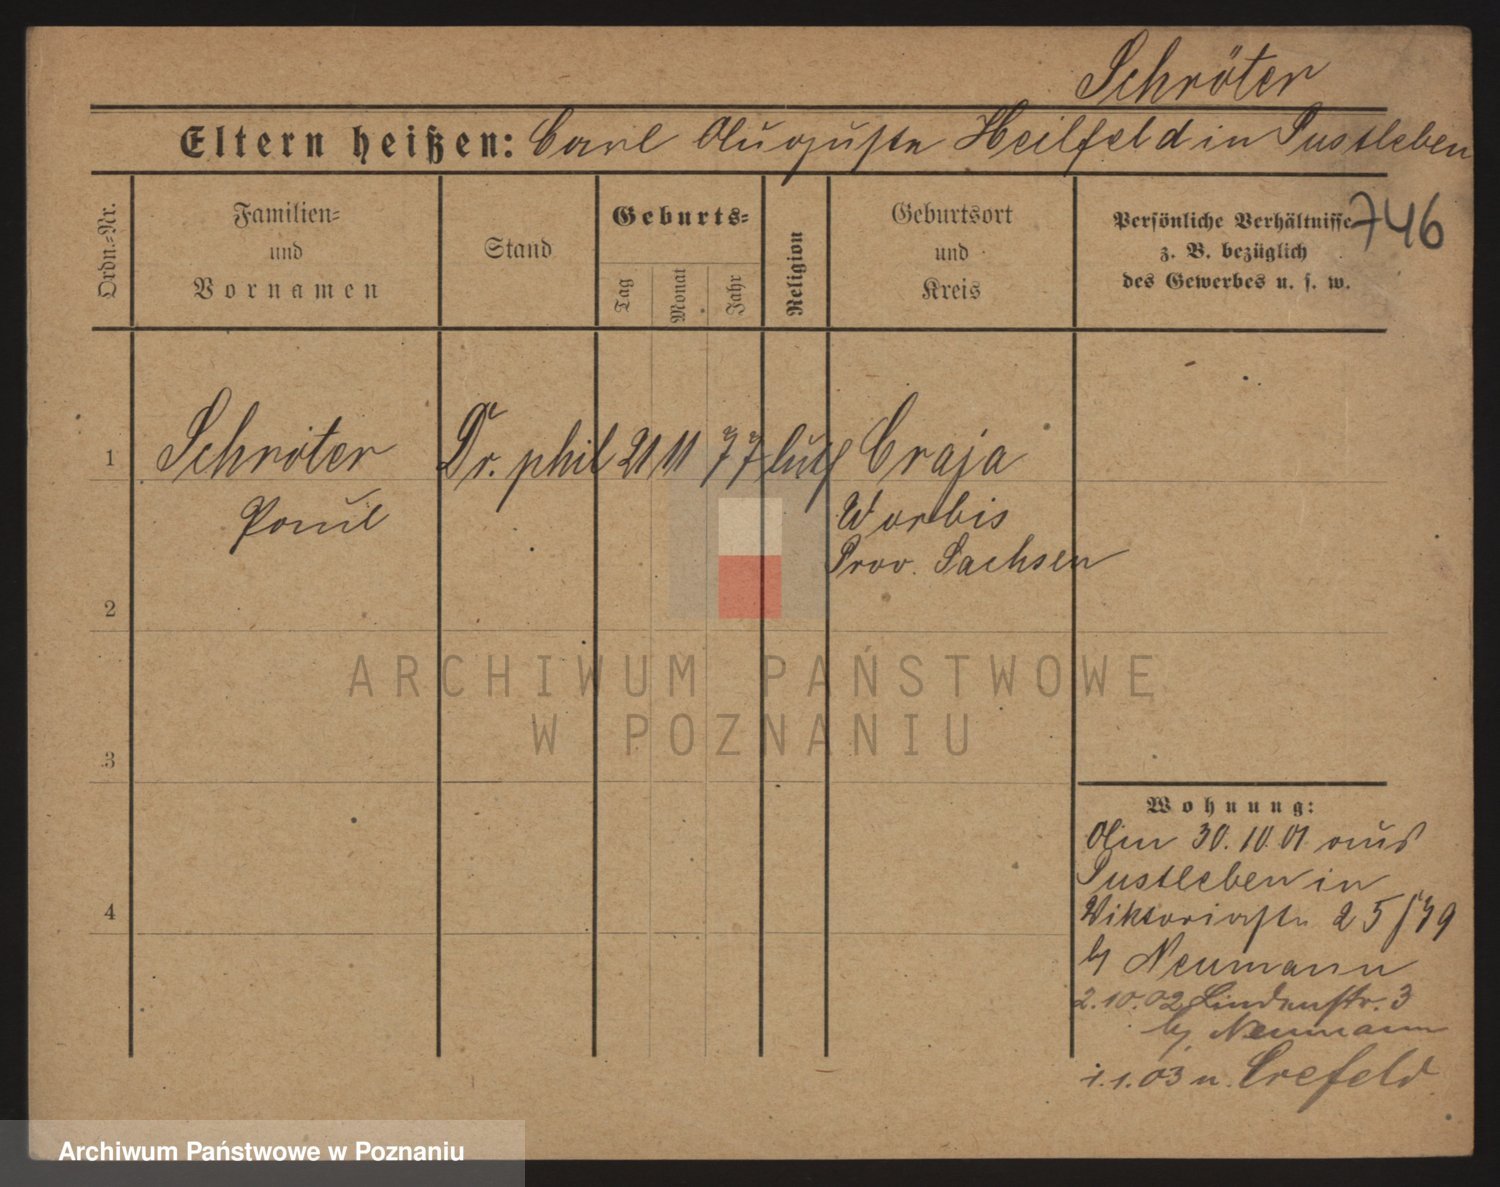 Schröter
Eltern heißen: Carl Auguste Heilfeld in Pustleben
Ordn.-Nr.
Familien-
und
Vornamen
Stand
Geburts-
Tag
Monat
Jahr
Religion
Geburtsort
und
Kreis
Persönliche Verhältnisse
z. B. bezüglich
des Gewerbes u. s. w.
746
1 Schröter Dr. phil 21 11 77 luth Craja
Paul Worbis
Prov. Sachsen
2
ARCHIWUM PAŃSTWOWE
W POZNANIU
3
Wohnung:
Am 30.10.01 aus
Pustleben in
4
Viktoriastr 25
b/ Neumann
2.10.02 Lindenstr. 3
b/ Neumann
1.1.03 n. Crefeld
Archiwum Państwowe w Poznaniu